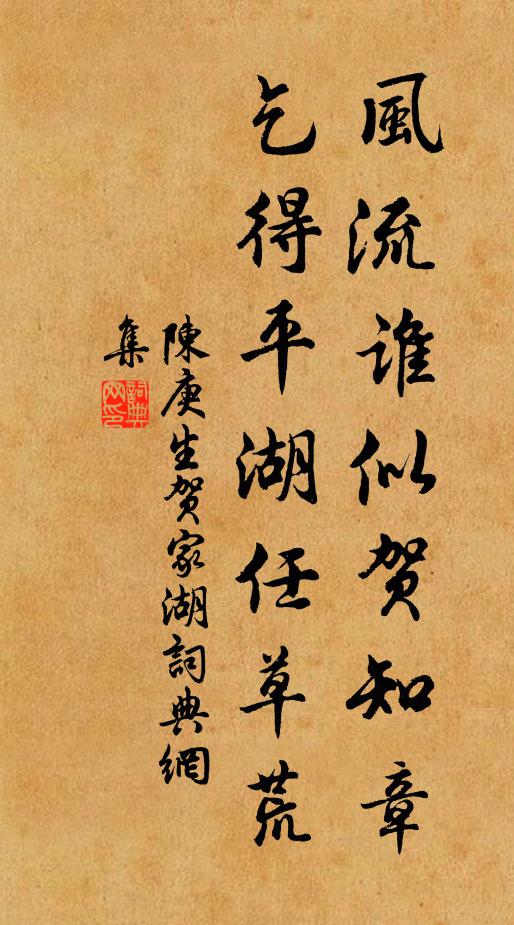 風流誰似賀知章
乞得平湖任草荒
陳庚生賀家湖詞典網
集
詞典網印